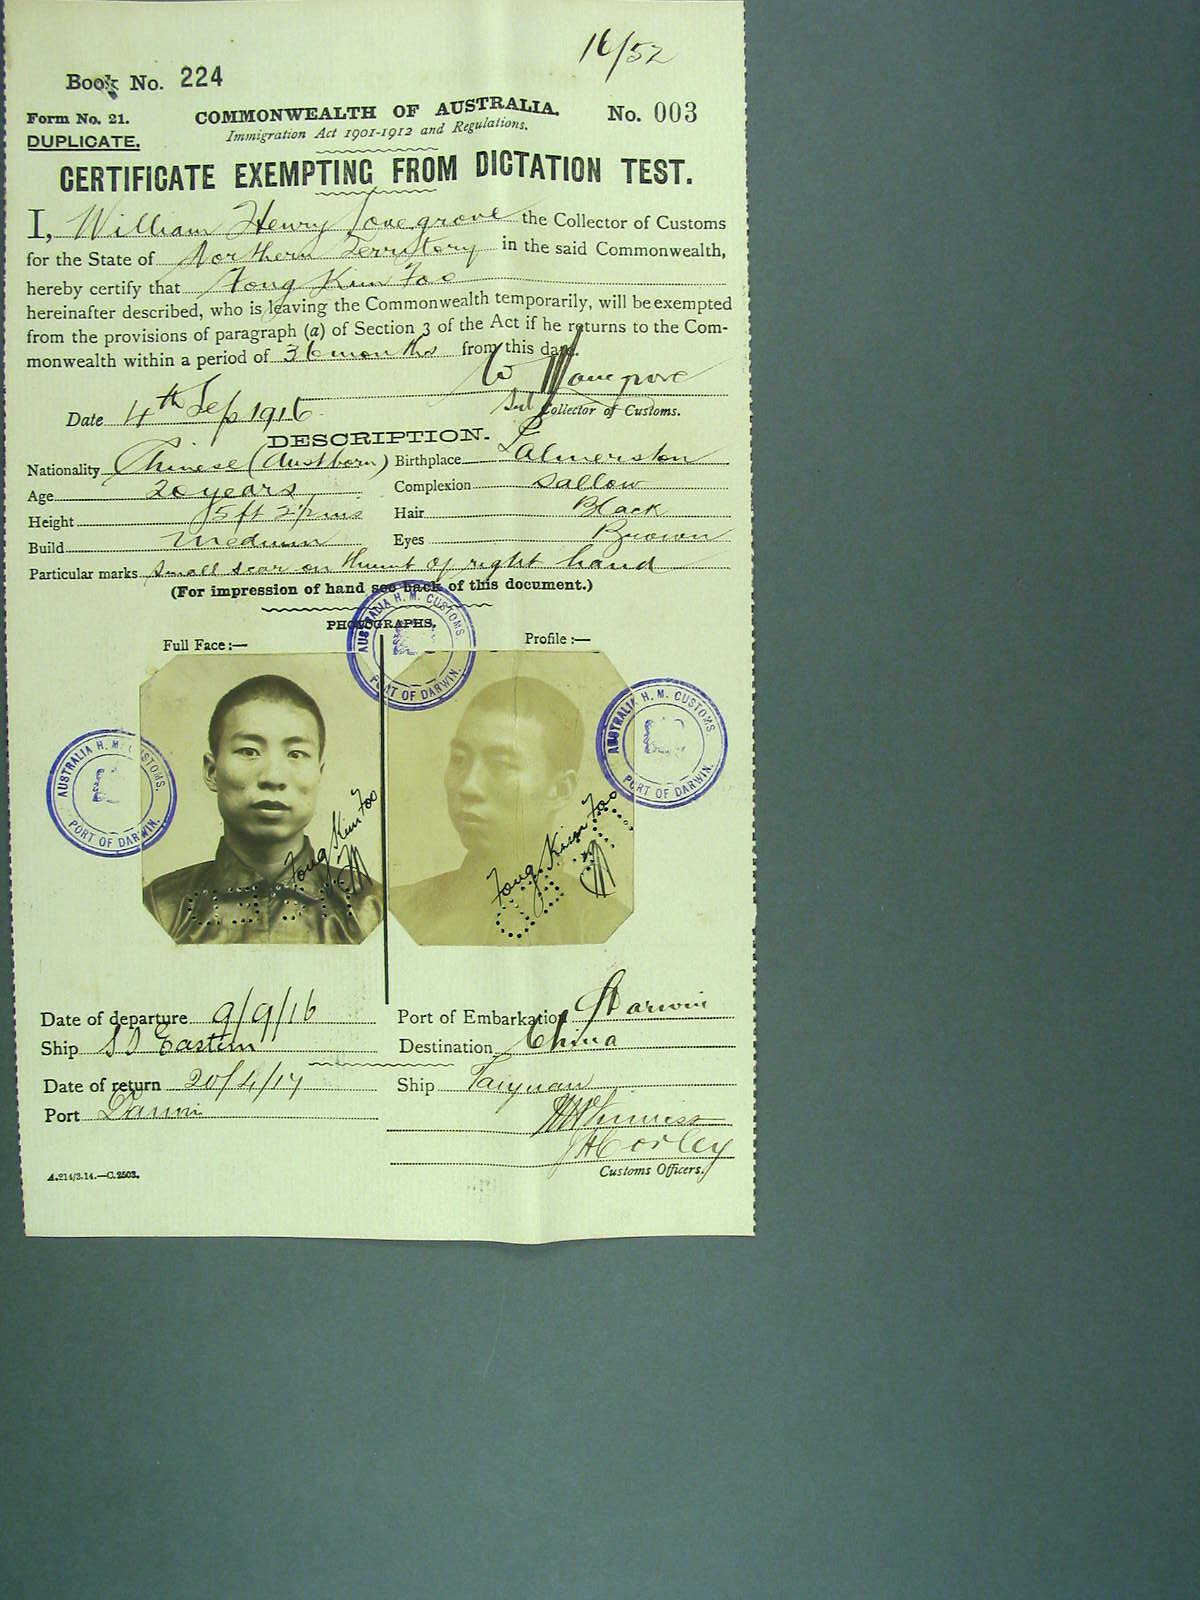 16/52
Book No. 224
Form No. 21. COMMONWEALTH OF AUSTRALIA. No. 003
DUPLICATE. Immigration Act 1901-1912 and Regulations.
CERTIFICATE EXEMPTING FROM DICTATION TEST.
I, William Henry Lovegrove the Collector of Customs
for the State of Northern Territory in the said Commonwealth,
hereby certify that Fong Kim Foo
hereinafter described, who is leaving the Commonwealth temporarily, will be exempted
from the provisions of paragraph (a) of Section 3 of the Act if he returns to the Com-
monwealth within a period of 36 months from this date.
W Lovegrove
Date 4th Sep 1916 Sub Collector of Customs.
DESCRIPTION.
Nationality Chinese (Aust born) Birthplace Palmerston
Age 20 years Complexion Sallow
Height 5 ft 2½ ins Hair Black
Build Medium Eyes Brown
Particular marks Small scar on thumb of right hand
(For impression of hand see back of this document.)
PHOTOGRAPHS.
Full Face :— Profile :—
AUSTRALIA H. M. CUSTOMS. PORT OF DARWIN.
AUSTRALIA H. M. CUSTOMS PORT OF DARWIN.
AUSTRALIA H. M. CUSTOMS. PORT OF DARWIN.
Fong Kim Foo
Fong Kim Foo
Date of departure 9/9/16 Port of Embarkation Pt Darwin
Ship SS Eastern Destination China
Date of return 20/4/17 Ship Taiyuan
Port Darwin
JHCorley
Customs Officers.
A.214/3.14.—C.2503.